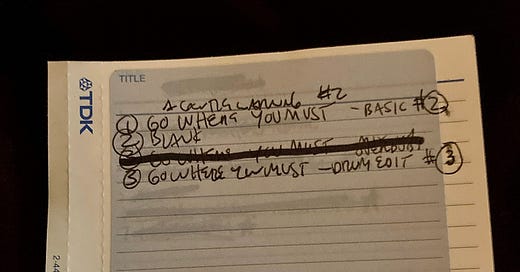 TDK
TITLE
#2
① GO WHERE YOU MUST - BASIC #②
② BLANK
GO WHERE YOU MUST
③ GO WHERE YOU MUST - DRUM EDIT #③
2:44